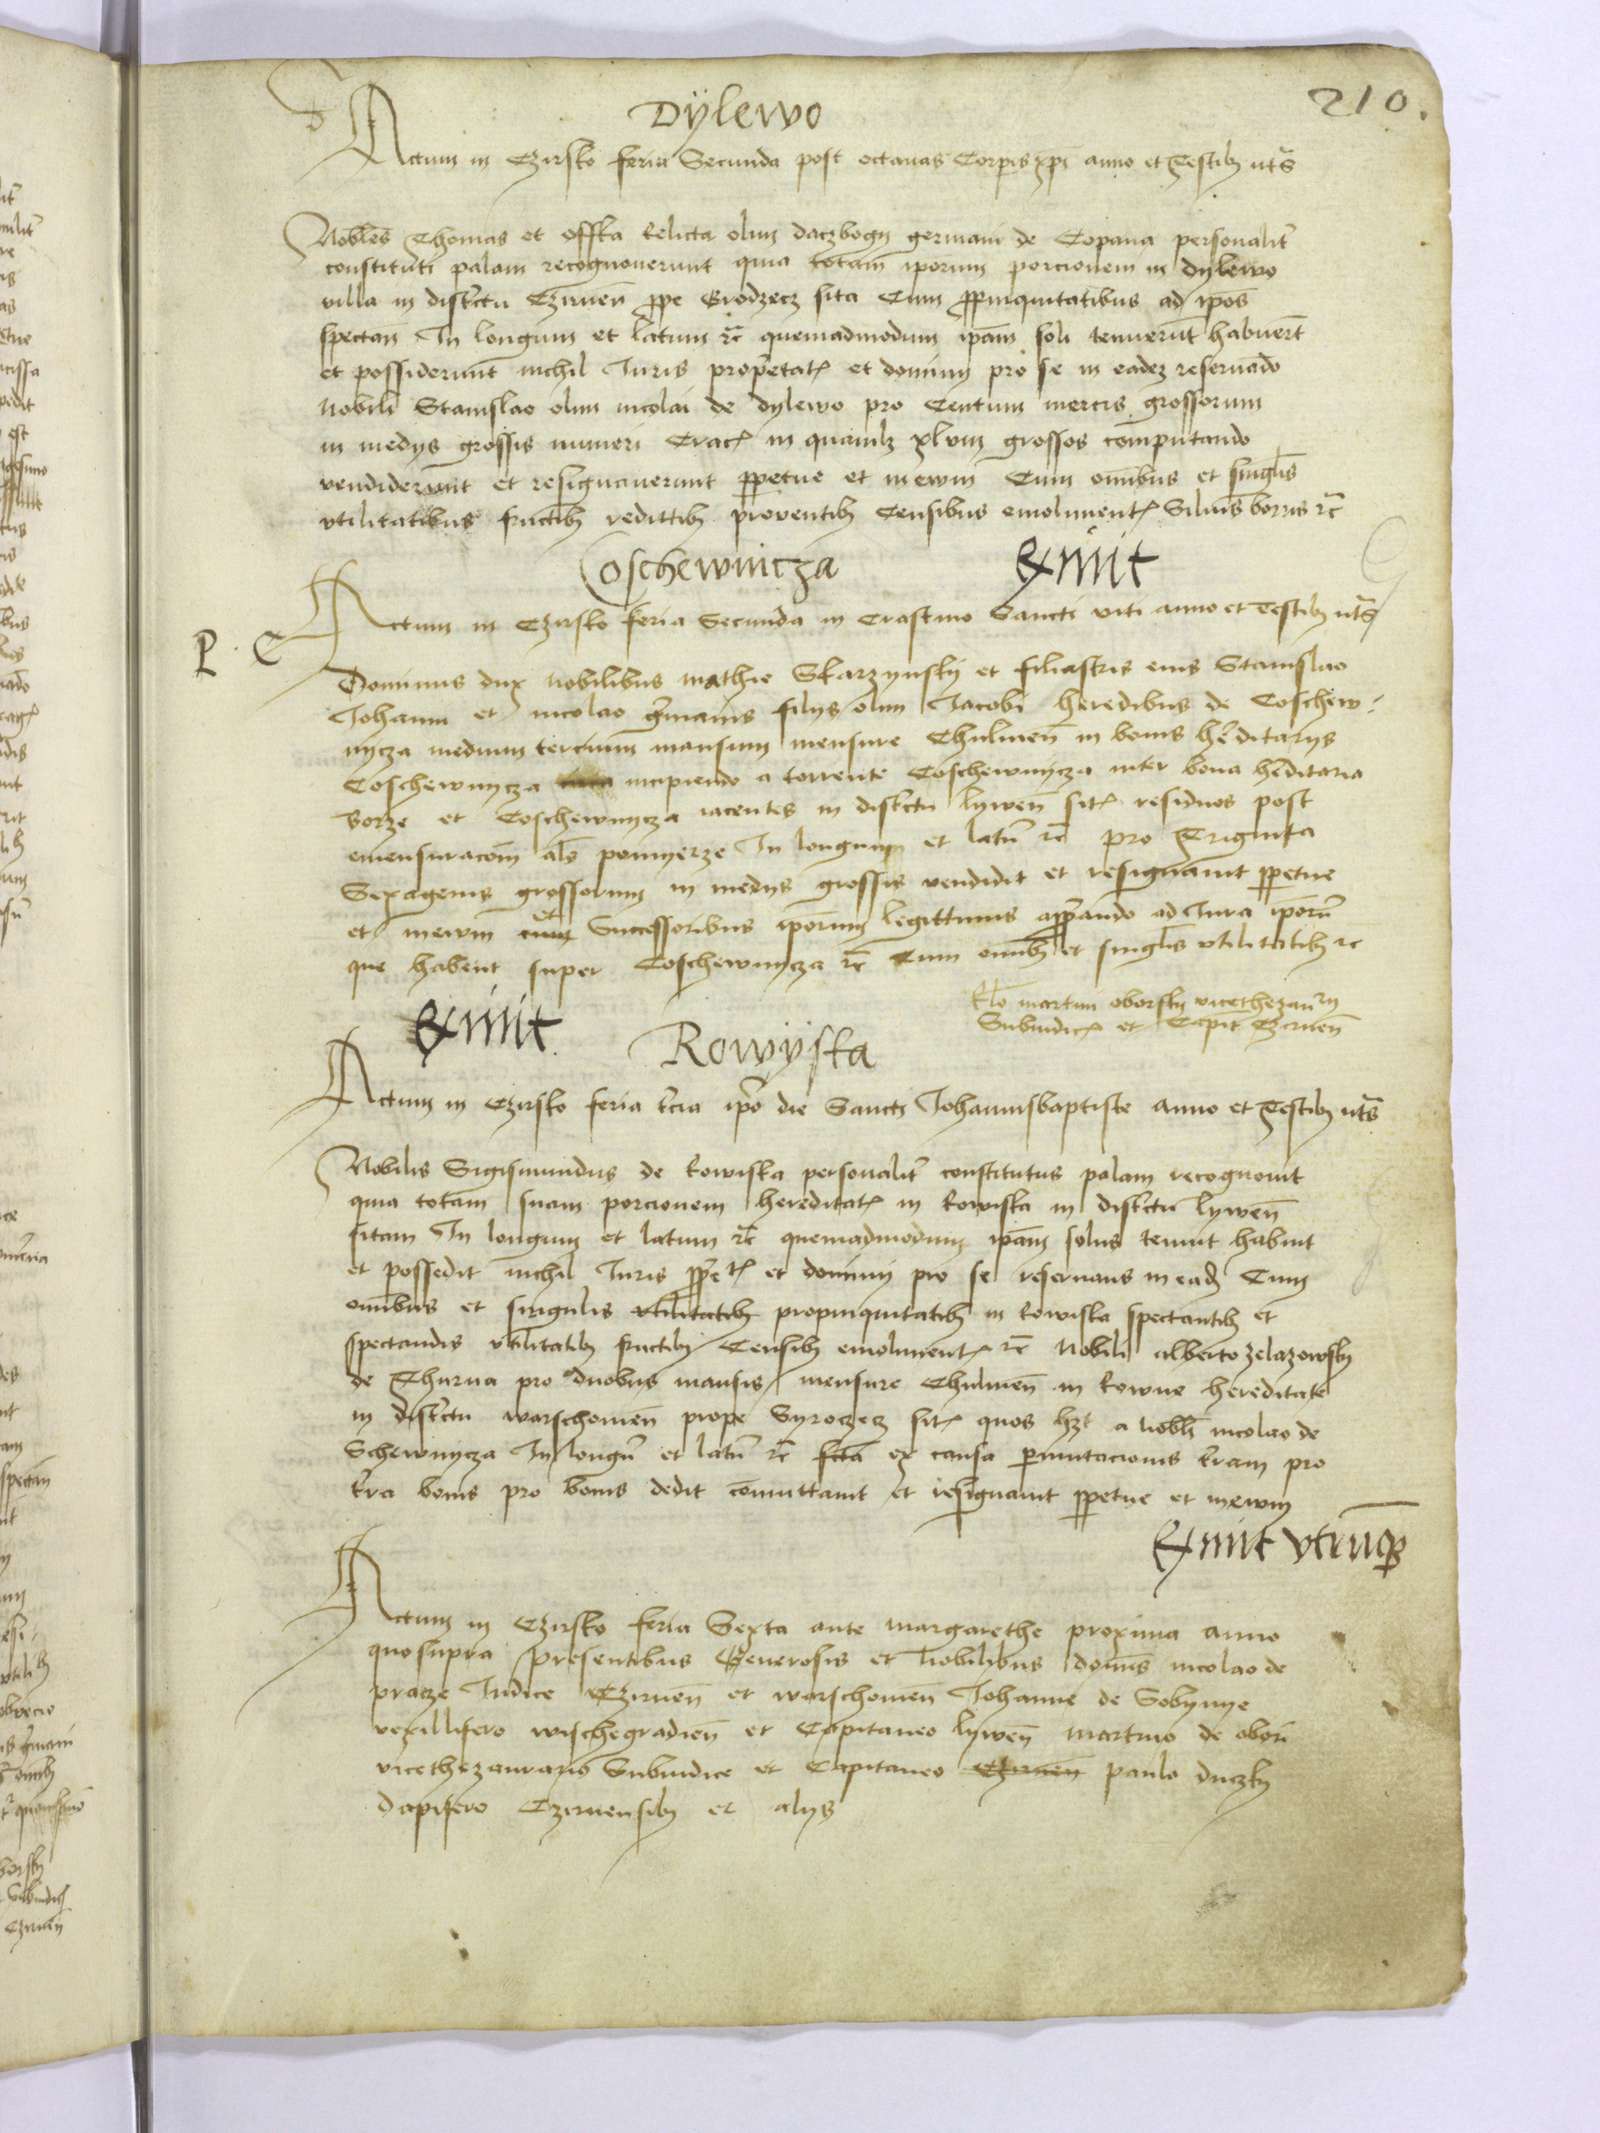 210.
Dÿlewo
Actum in Czirsko feria Secunda post octauas Corpis xpi anno et Testibz uts
Nobiles Thomas et Offka Relicta olim daczbogij germani de Copana personalit
constituti palam recognouerunt quia totam iporum porcionem in dylewo
villa in districtu Czirnen ppe Grodzecz sita Cum ppinquitatibus ad ipos
spectan In longum et latum rc quemadmodum ipam soli tenuerut habuert
et possiderunt nichil Iuris proprietatis et dominij pro se in eadez reseruado
Nobili Stanislao olim nicolai de dylewo pro Centum mercis grossorum
in medijs grossis numeri Crac in quamlz xlviij grossos computando
vendiderunt et resignauerunt ppetue et in ewm Cum omibus et singlis
vtilitatibus fructibz redittibz prouentibz Censibus emolument Siluis borris rc
Coschewnicza
Exiuit
Actum in Czirsko feria Secunda in Crastino Sancti viti anno et Testibz uts
P. C
Dominus dux Nobilibus mathie Skarzynsky et filiastris eius Stanislao
Johanni et nicolao gmanis filijs olim Jacobi heredibus de Coschew-
nycza medium tercium mansum mensure Chulmen in bonis hditarijs
Coschewnycza incipiendo a torrente Coschewnycza inter bona hditaria
borze et Coschewnycza iacentes in districtu lywen sit residuos post
emensuracom als pomyerze In longum et latu rc pro Triginta
Sexagenis grossorum in medijs grossis vendidit et resignauit ppetue
et in ewm cum et Successoribus iporum legittimis apprando ad Iura iporu
que habent super Coschewnycza rc Cum omibz et singlis vtilitatibz rc
Rlo martini oborsky vicethezaurij
Subiudic et Capit Czirnen
Exiuit
Rowÿska
Actum in Czirsko feria tercia ipo die Sancti Johannisbaptiste anno et Testibz uts
Nobilis Sigismundus de Rowiska personalit constitutus palam recognouit
quia totam suam porcionem hereditat in Rowiska in districtu lywen
sitam In longum et latum rc quemadmodum ipam solus tenuit habuit
et possedit nichil Iuris ppet et dominij pro se reseruans in ead Cum
omibus et singulis vtilitatibz propinquitatibz in Rowiska spectantibz et
spectandis vtilitatibz fructibz Censibz emolument rc Nobili alberto zelazowsky
de Churua pro duobus mansis mensure Chulmen in Rowne hereditate
in districtu warschouien prope Syroczecz sit quos hzt a nobli nicolao de
Schewnycza In longu et latu rc fcta ex causa pmutacionis tram pro
tra bonis pro bonis dedit comittauit et resignauit ppetue et in ewm
Exiuit vtruqz
Actum in Czirsko feria Sexta ante margarethe proxima anno
quo supra presentibus Generosis et Nobilibus domis nicolao de
pracze Iudice Czirnen et warschouien Johanne de Sobynye
vexillifero wischegradien et Capitaneo lywen martino de obori
vicethezaurario Subiudice et Capitaneo Czirnen paulo duczky
dapifero Czirnensibz et alijs